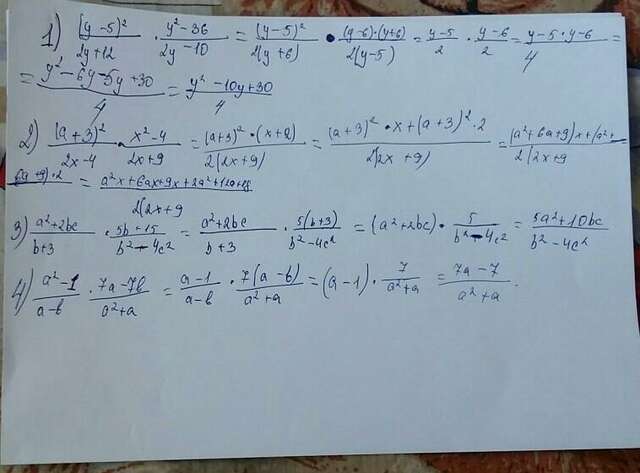 1) (y-5)²/2y+12 · y²-36/2y-10 = (y-5)²/2(y+6) · (y-6)·(y+6)/2(y-5) = y-5/2 · y-6/2 = y-5·y-6/4 =
= y²-6y-5y+30/4 = y²-10y+30/4
2) (a+3)²/2x-4 · x²-4/2x+9 = (a+3)²·(x+2)/2(2x+9) = (a+3)²·x+(a+3)²·2/2(2x+9) = (a²+6a+9)x+(a²+/2(2x+9
·2 = a²x+6ax+9x+2a²+12a+/2(2x+9
3) a²+2bc/b+3 · 5b+15/b²-4c² = a²+2bc/b+3 · 5(b+3)/b²-4c² = (a²+2bc)·5/b²-4c² = 5a²+10bc/b²-4c²
4) a²-1/a-b · 7a-7b/a²+a = a-1/a-b · 7(a-b)/a²+a = (a-1)·7/a²+a = 7a-7/a²+a.